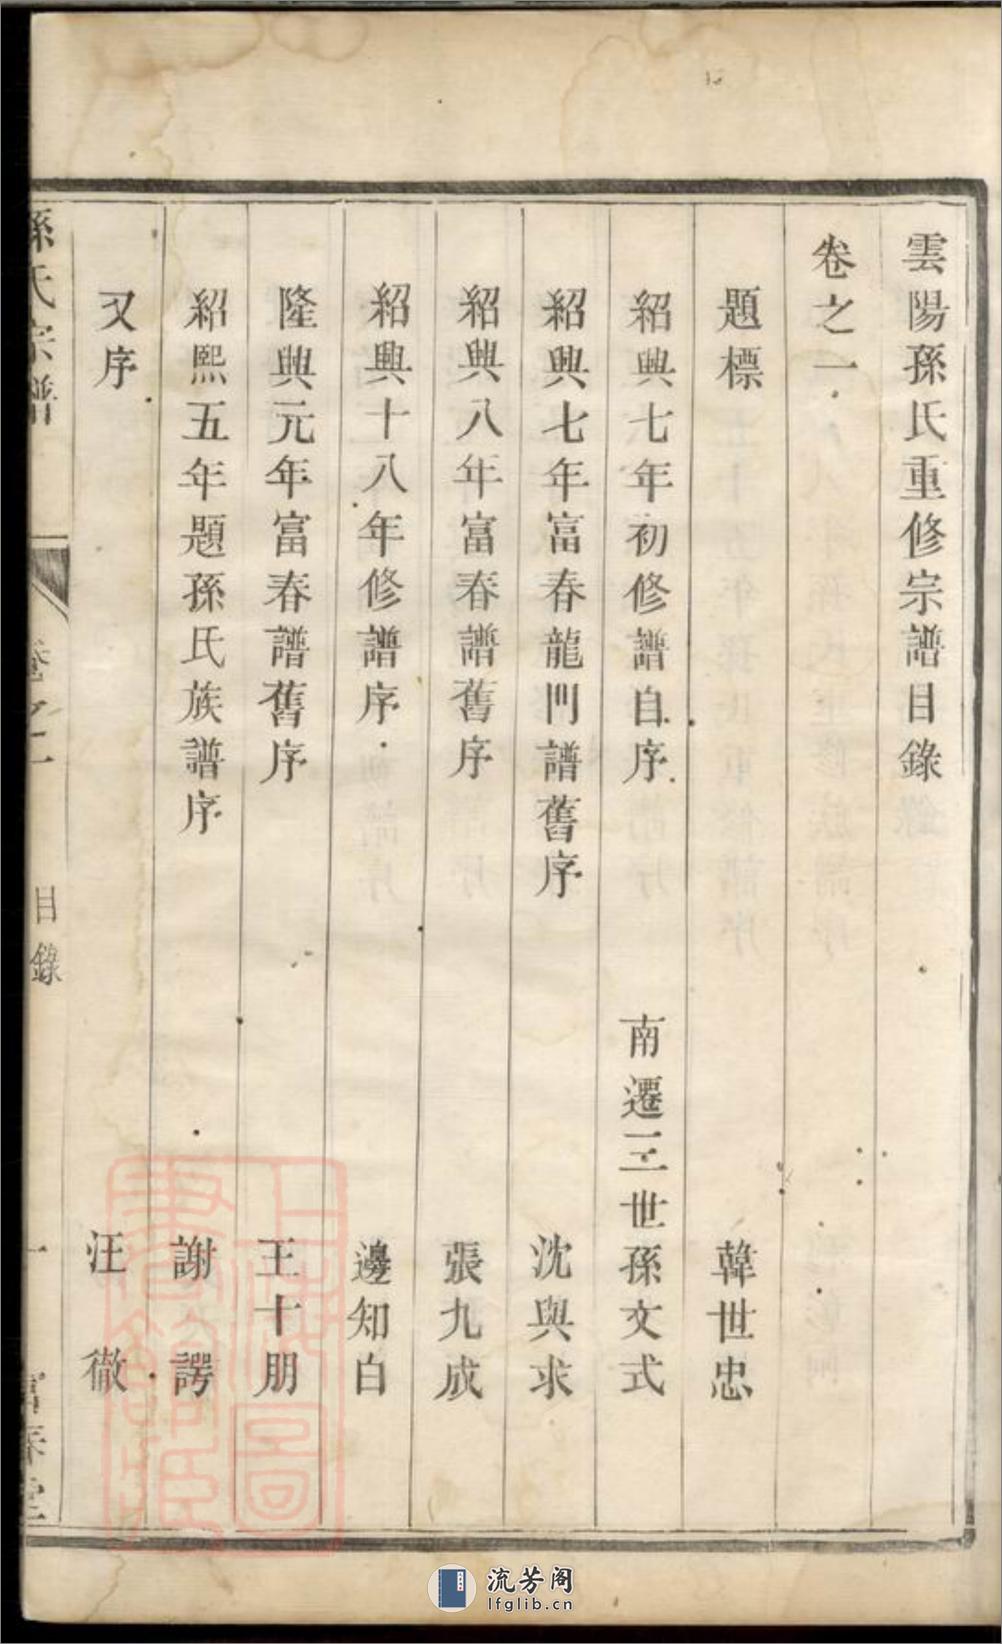 雲陽孫氏重修宗譜目錄
卷之一
題標 韓世忠
紹興七年初修譜自序 南遷三世孫文式
紹興七年富春龍門譜舊序 沈與求
紹興八年富春譜舊序 張九成
紹興十八年修譜序 邊知白
隆興元年富春譜舊序 王十朋
紹熙五年題孫氏族譜序 謝諤
又序 汪徹
孫氏宗譜 卷之一 目錄 一 富春堂
上海圖書館藏
流芳阁
lfglib.cn